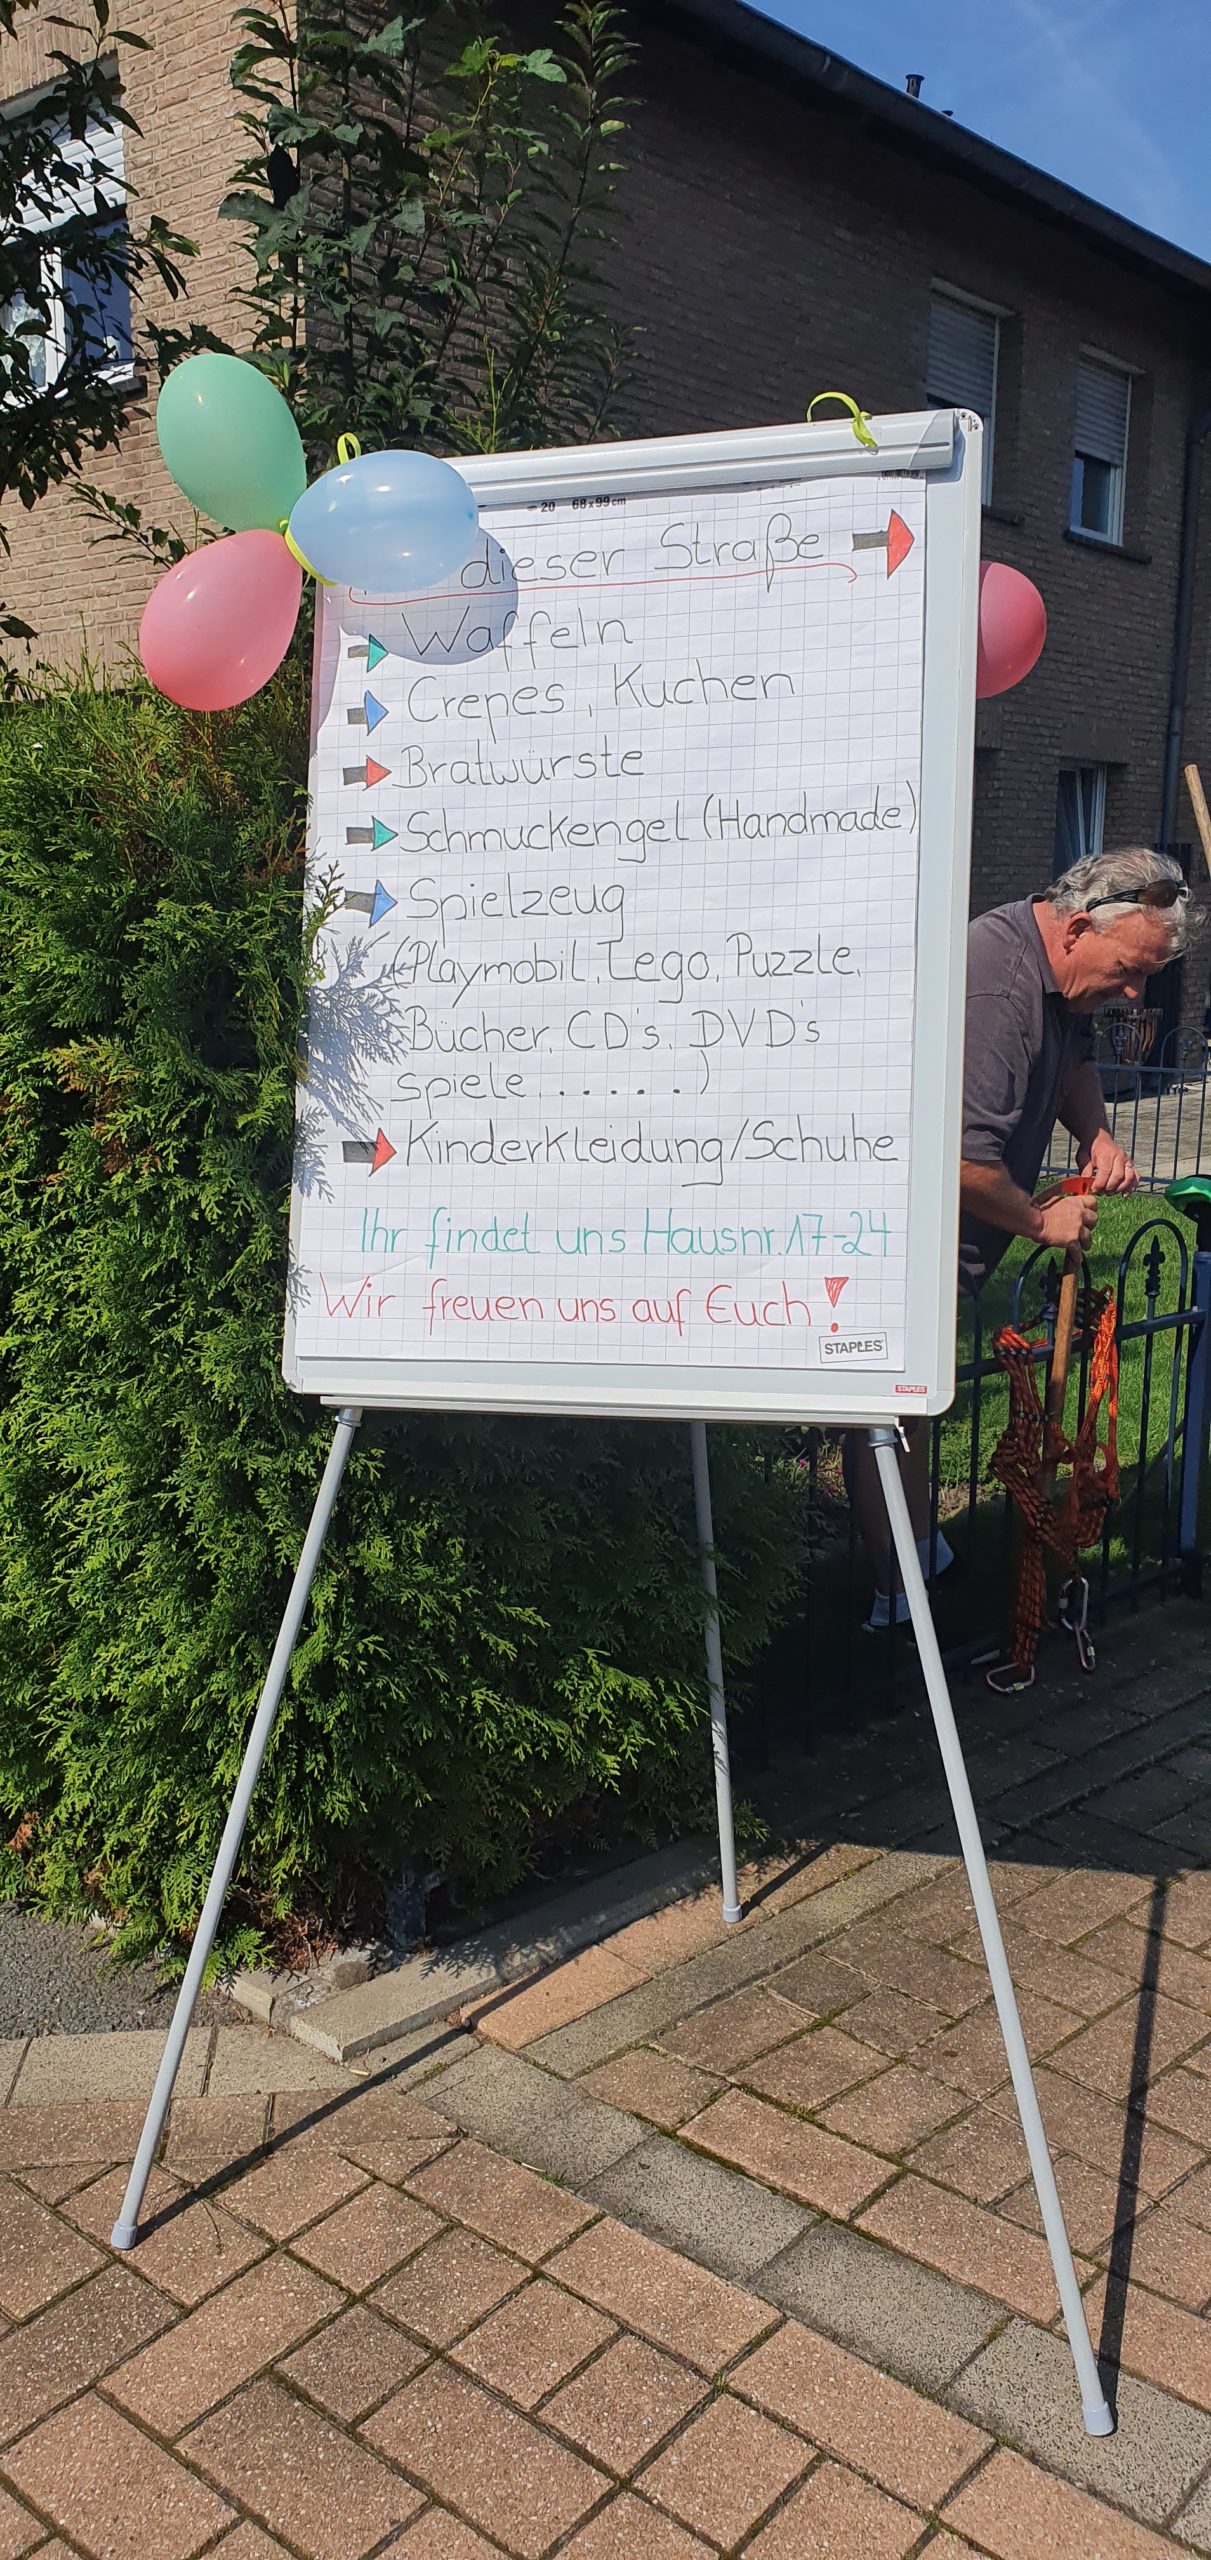 20 68x99cm
dieser Straße
Waffeln
Crepes, Kuchen
Bratwürste
Schmuckengel (Handmade)
Spielzeug
(Playmobil, Lego, Puzzle,
Bücher, CD's, DVD's
Spiele, . . . . . .)
Kinderkleidung/Schuhe
Ihr findet uns Hausnr. 17-24
Wir freuen uns auf Euch!
STAPLES
STAPLES